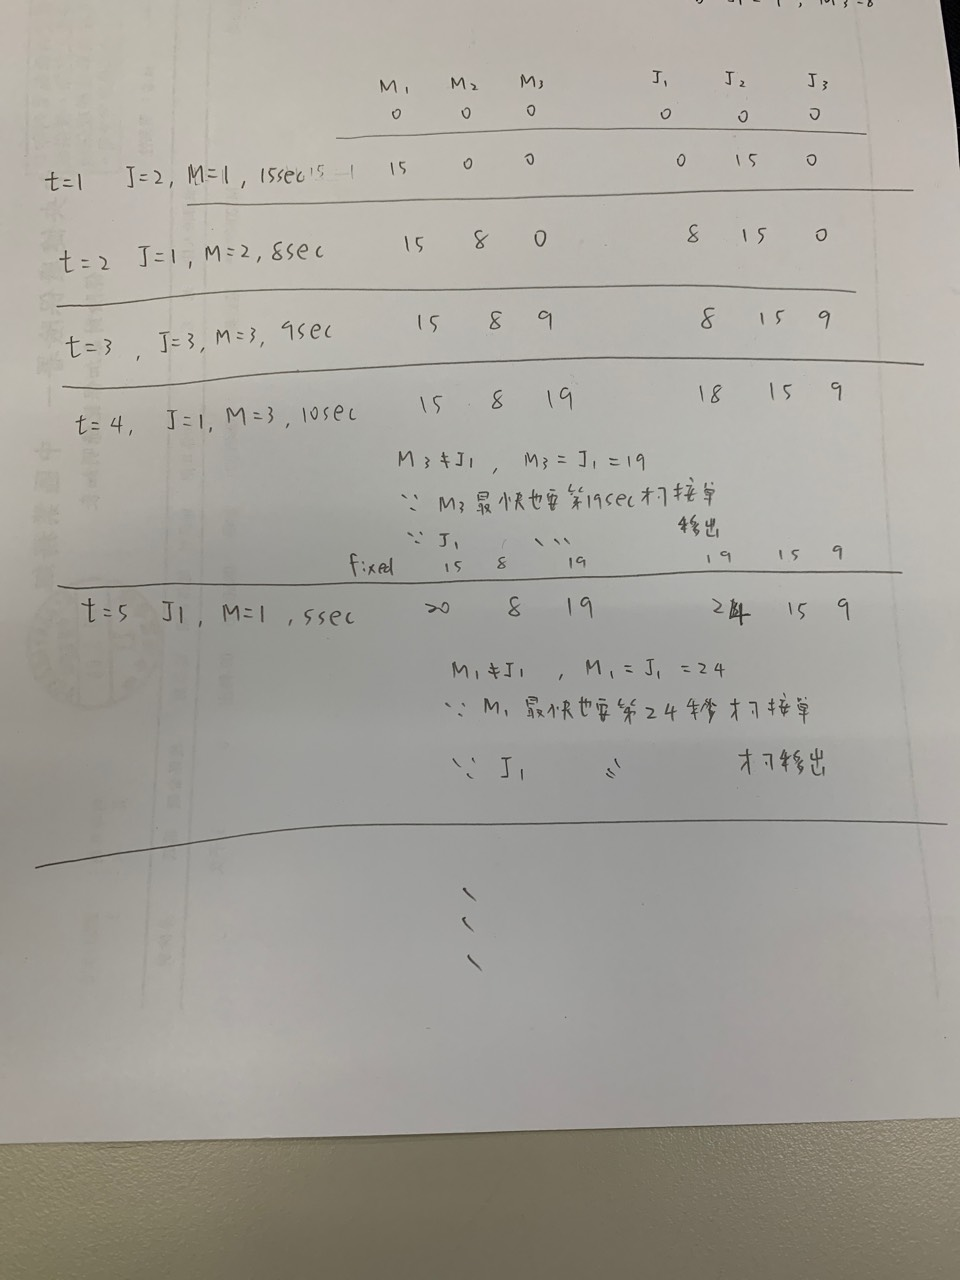 M3=8
M1 M2 M3 J1 J2 J3
0 0 0 0 0 0
t=1 J=2, M=1, 15sec 15 0 0 0 15 0
t=2 J=1, M=2, 8sec 15 8 0 8 15 0
t=3, J=3, M=3, 9sec 15 8 9 8 15 9
t=4, J=1, M=3, 10sec 15 8 19 18 15 9
M3≠J1, M3=J1=19
∵ M3最快也要第19sec才可接單
∵ J1 〃 移出
fixed 15 8 19 19 15 9
t=5 J1, M=1, 5sec 20 8 19 24 15 9
M1≠J1, M1=J1=24
∵ M1最快也要第24秒才可接單
∵ J1 〃 才可移出